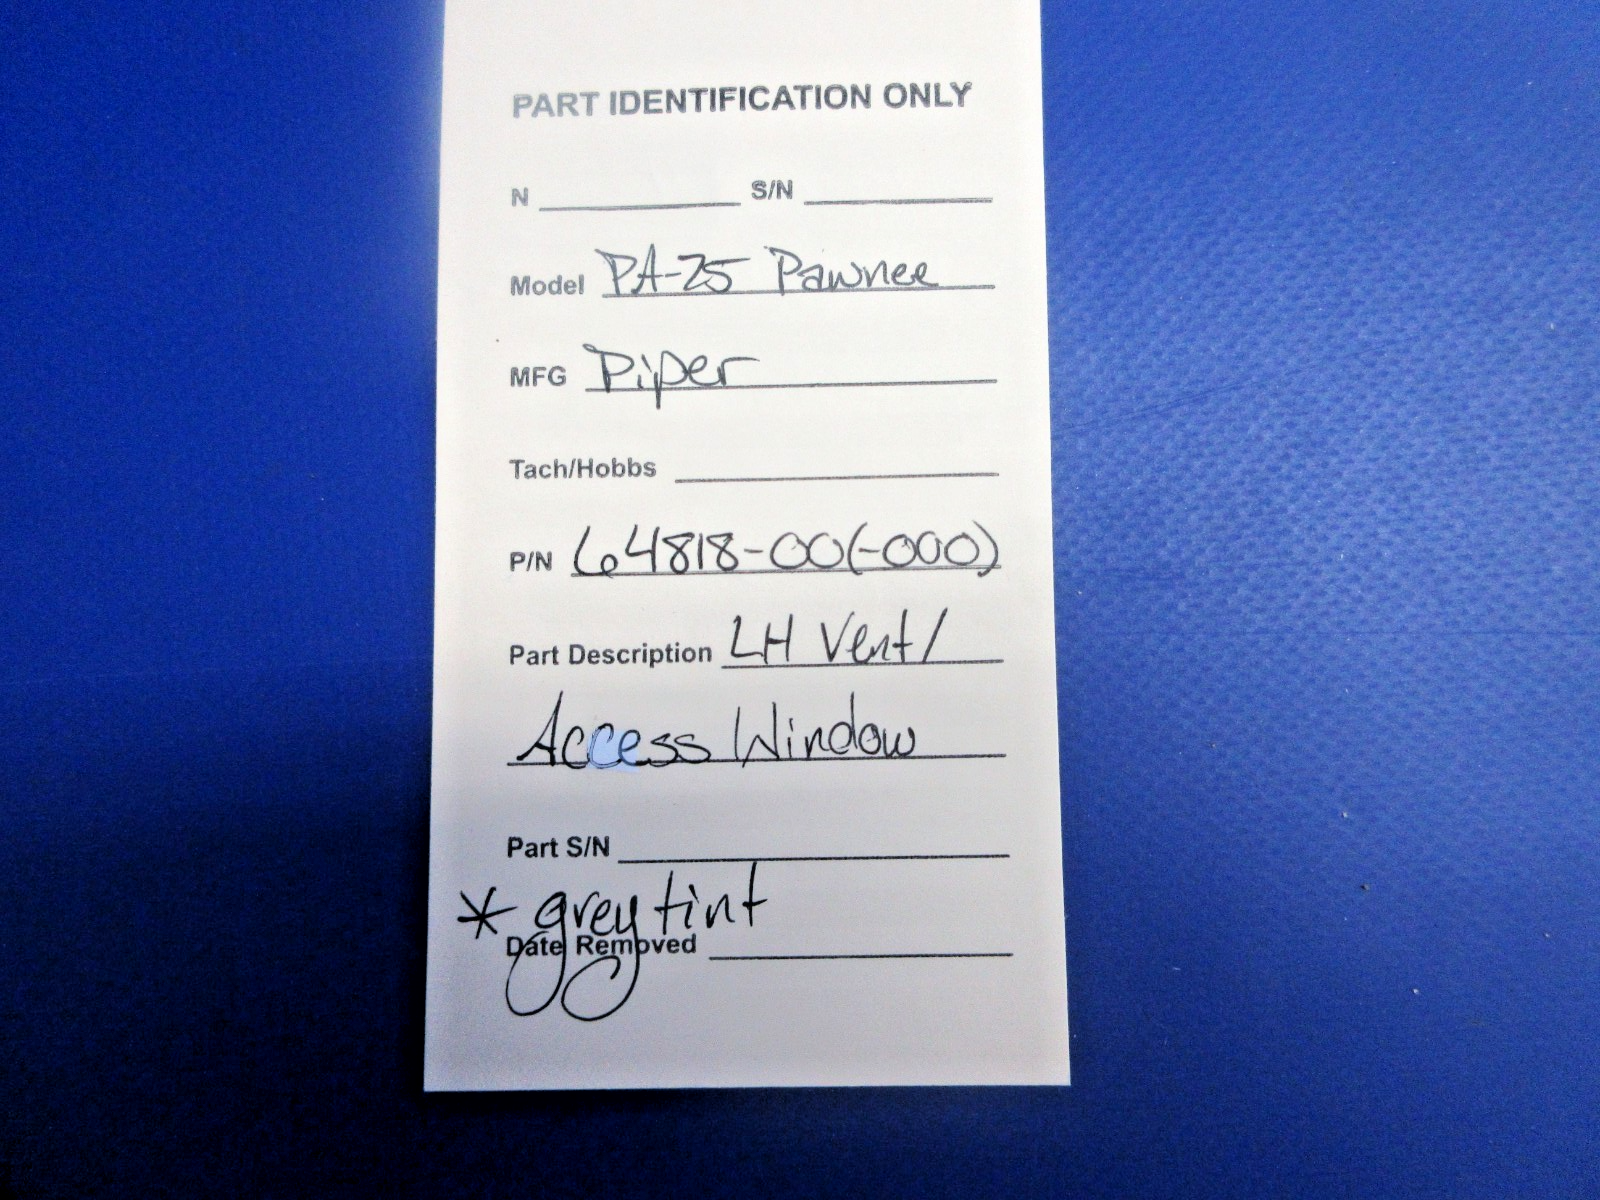 PART IDENTIFICATION ONLY
N S/N
Model PA-25 Pawnee
MFG Piper
Tach/Hobbs
P/N 64818-00(-000)
Part Description LH Vent/
Access Window
Part S/N
* grey tint
Date Removed